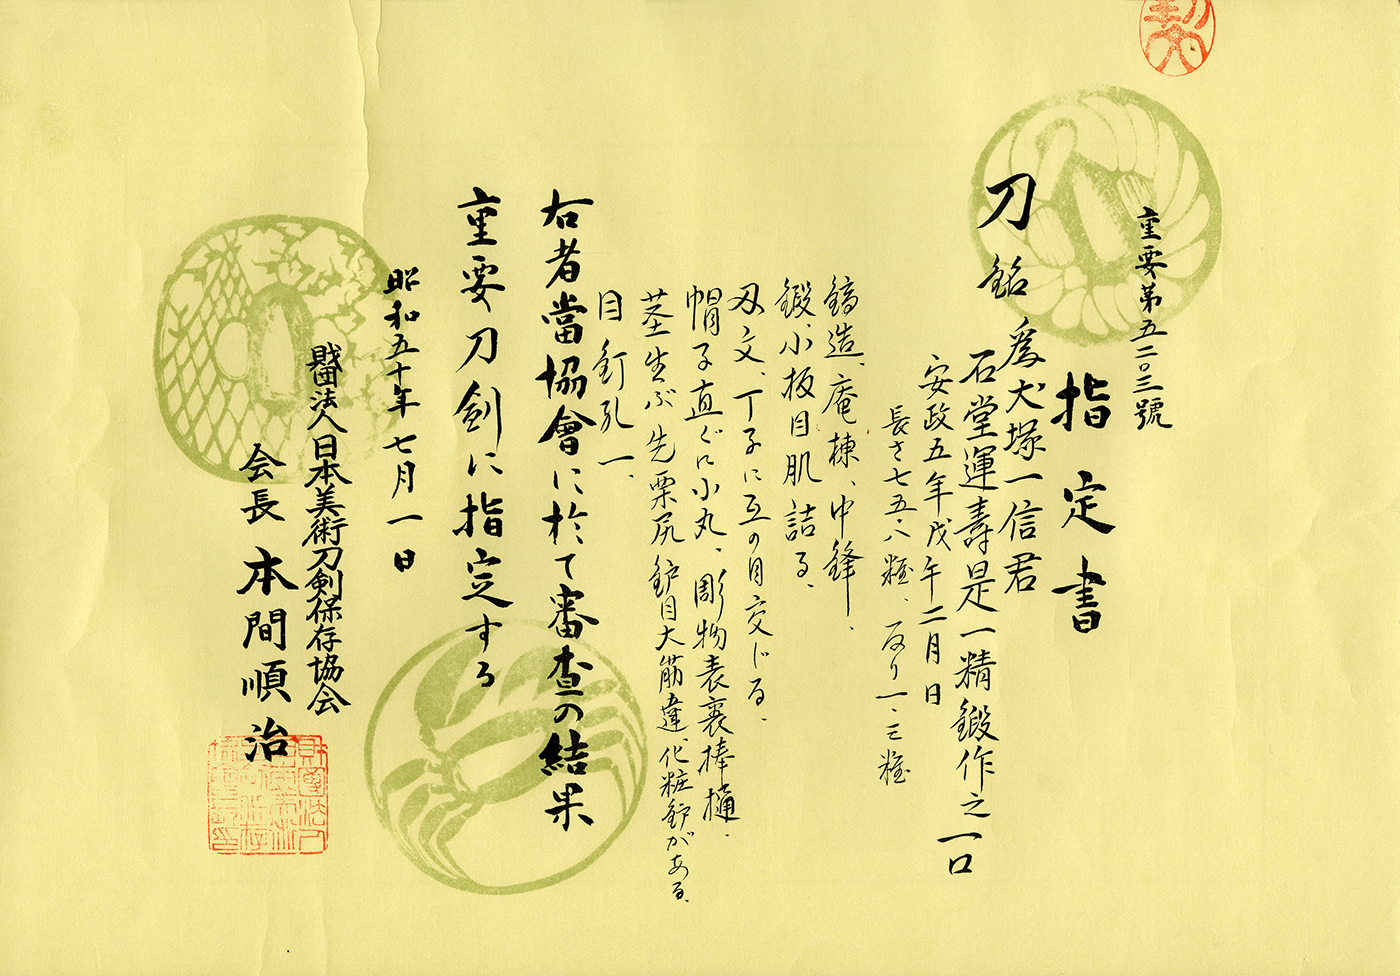 重要第五二〇三號
指定書
刀 銘 為大塚一信君
石堂運壽是一精鍛作之 一口
安政五年戊午二月日
長さ七五・八糎、反り一・三糎
鎬造、庵棟、中鋒、
鍛、小板目肌詰る、
刄文、丁子に互の目交じる、
帽子直ぐに小丸、彫物表裏棒樋、
茎生ぶ先栗尻鈩目大筋違、化粧鈩がある、
目釘孔一、
右者當協會に於て審査の結果
重要刀剣に指定する
昭和五十年七月一日
財団法人日本美術刀剣保存協会
会長 本間順治